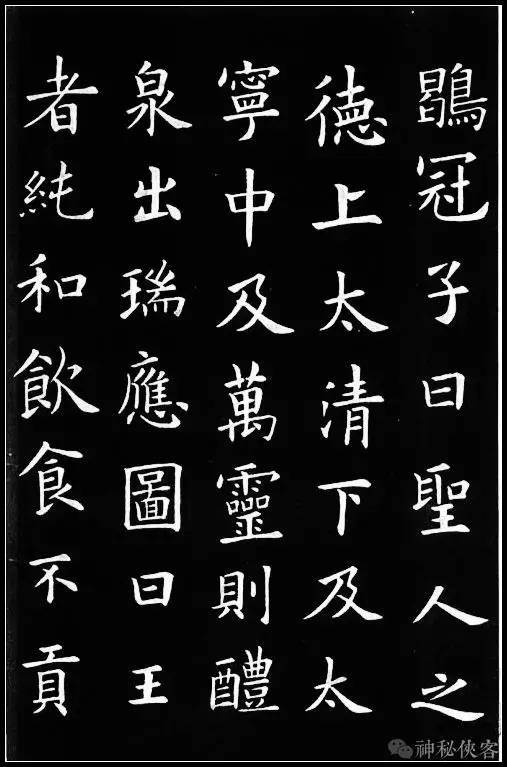 鶡冠子曰聖人之
徳上太清下及太
寧中及萬靈則醴
泉出瑞應圖曰王
者純和飲食不貢
神秘俠客